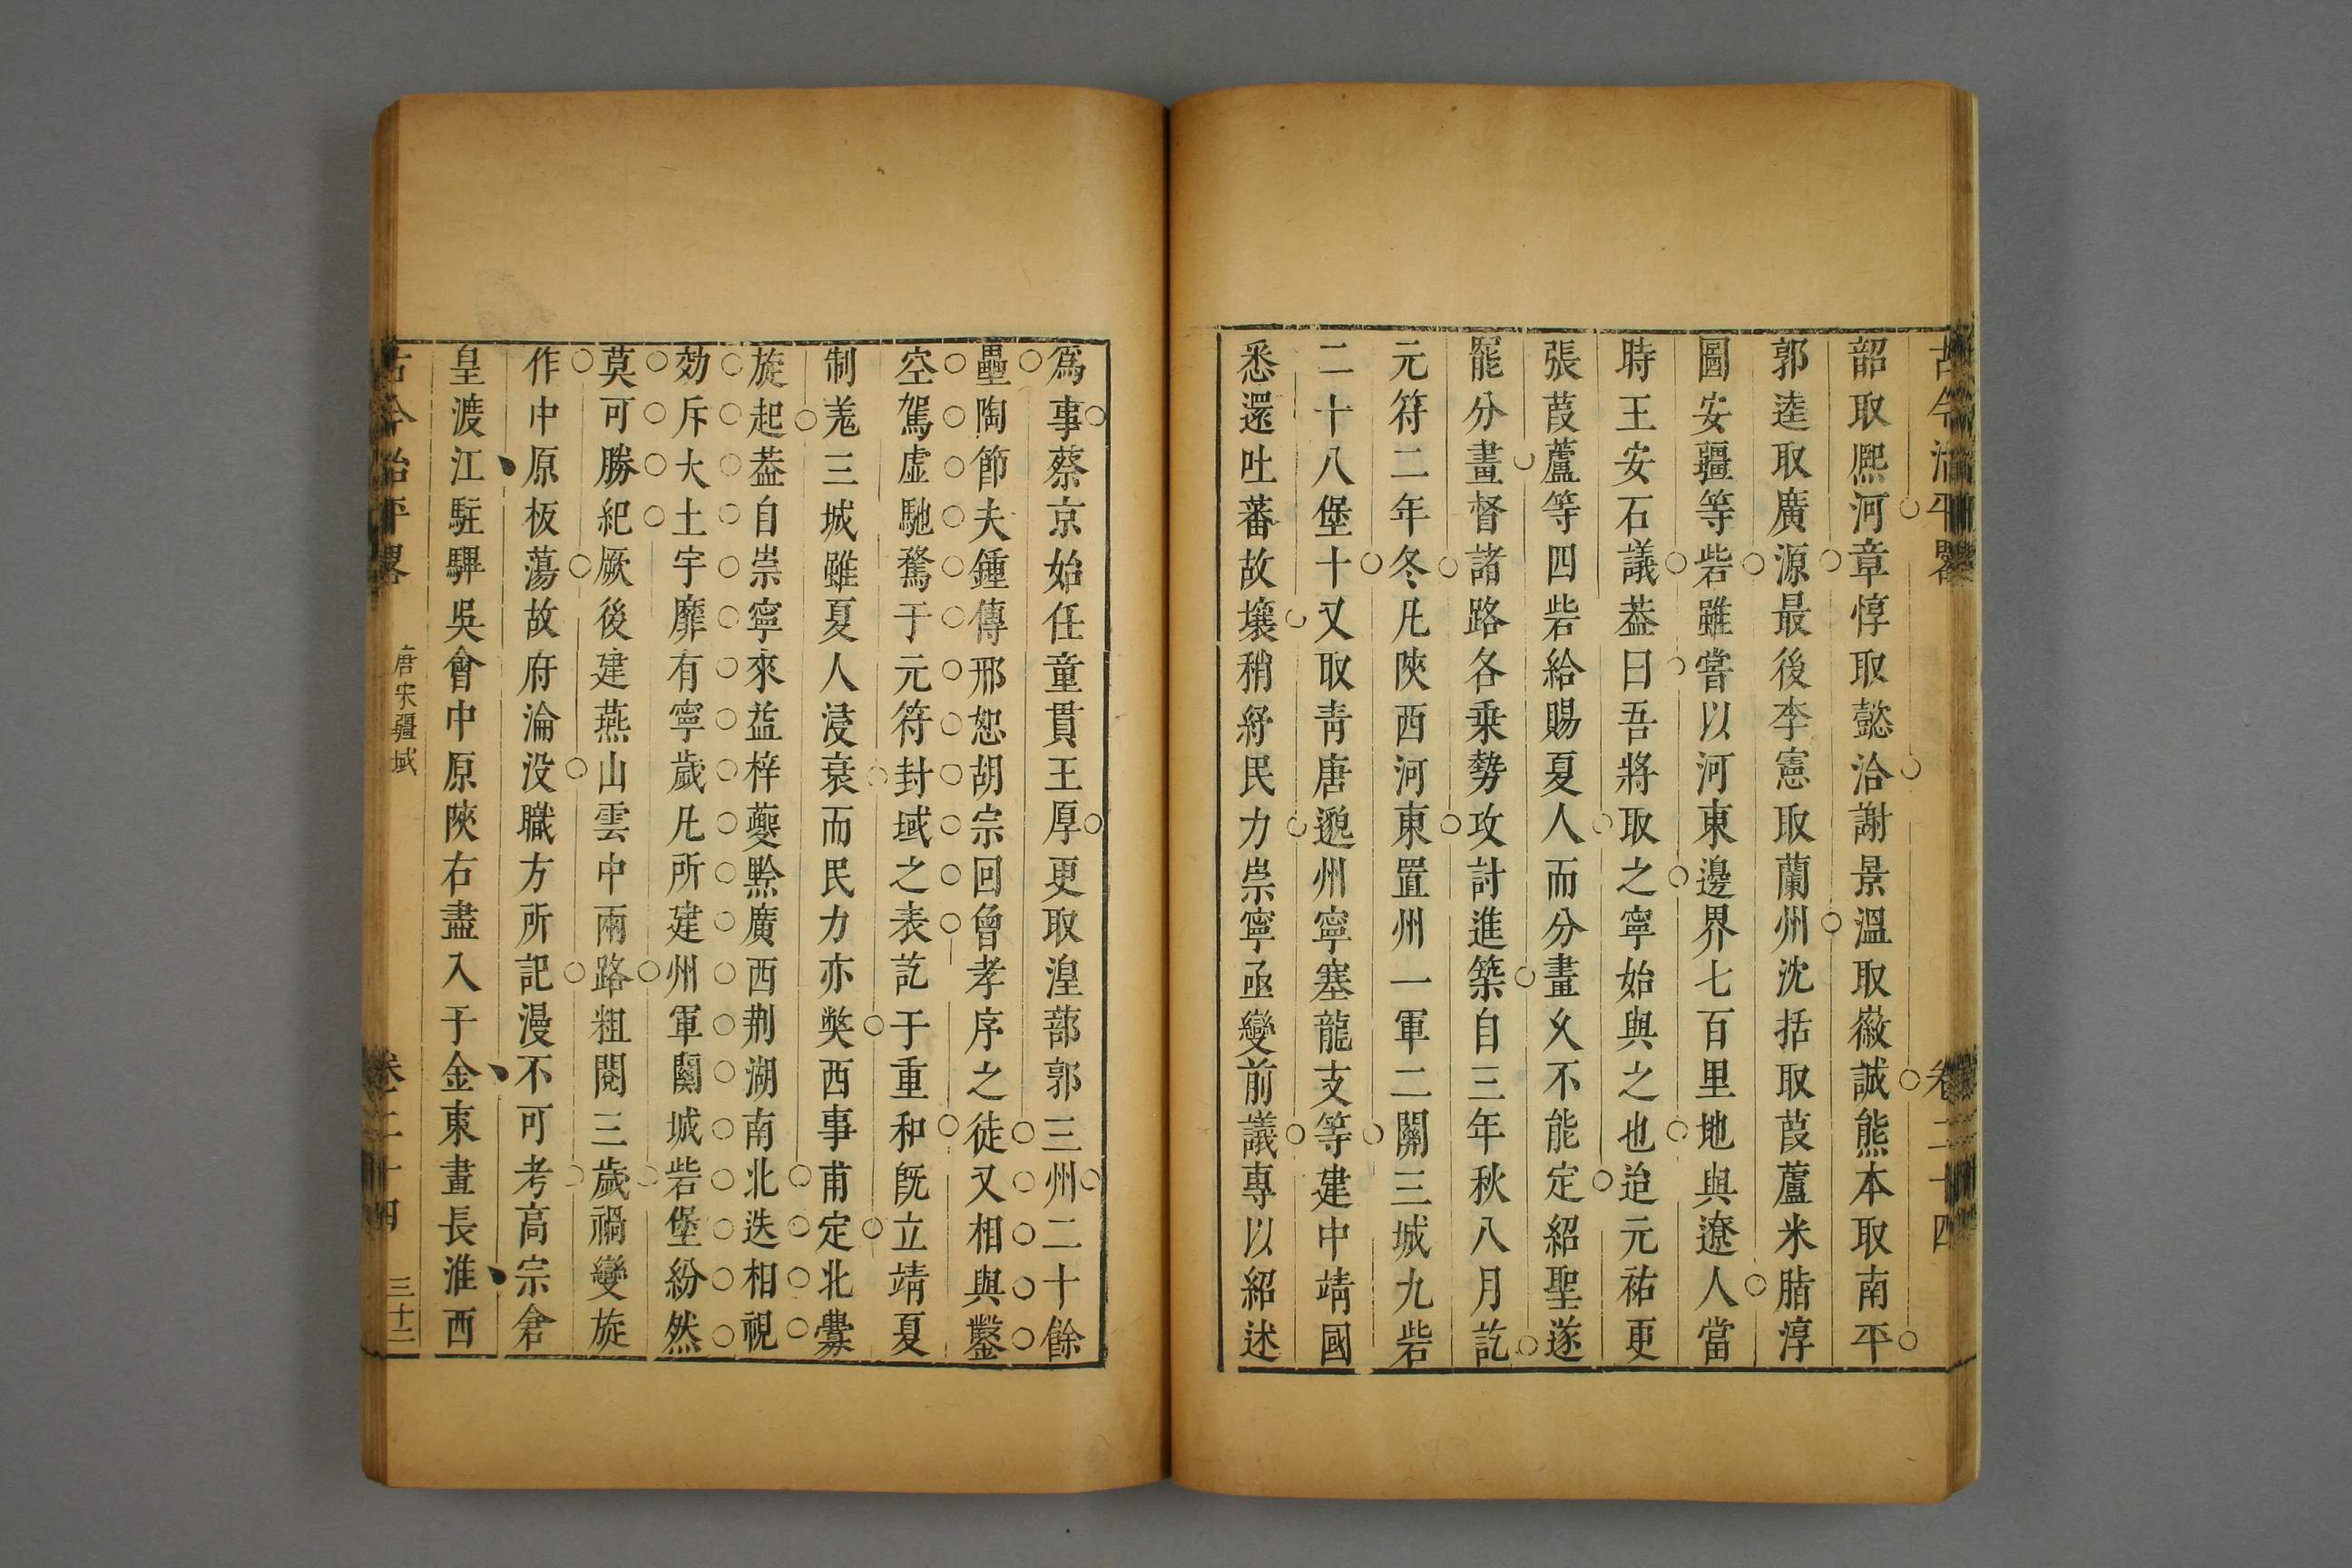 古今治平畧
卷二十四
韶取熈河章惇取懿洽謝景溫取徽誠熊本取南平
郭逵取廣源最後李憲取蘭州沈括取葭蘆米脂淳
圖安疆等砦雖嘗以河東邊界七百里地與遼人當
時王安石議葢曰吾將取之寧始與之也迨元祐更
張葭蘆等四砦給賜夏人而分畫久不能定紹聖遂
罷分畫督諸路各乗勢攻討進築自三年秋八月訖
元符二年冬凡陜西河東置州一軍二關三城九砦
二十八堡十又取靑唐邈州寧塞龍支等建中靖國
悉還吐蕃故壤稍紓民力崇寧亟變前議專以紹述
爲事蔡京始任童貫王厚更取湟鄯郭三州二十餘
壘陶節夫鍾傳邢恕胡宗回曾孝序之徒又相與鑿
空駕虛馳騖于元符封域之表訖于重和旣立靖夏
制羌三城雖夏人浸衰而民力亦獘西事甫定北釁
旋起葢自崇寧來益梓夔黔廣西荆湖南北迭相視
効斥大土宇靡有寧歲凡所建州軍關城砦堡紛然
莫可勝紀厥後建燕山雲中兩路粗閱三歲禍變旋
作中原板蕩故府淪没職方所記漫不可考高宗倉
皇渡江駐驆吳會中原陜右盡入于金東畫長淮西
古今治平畧
唐宋疆域
卷二十四
三十二